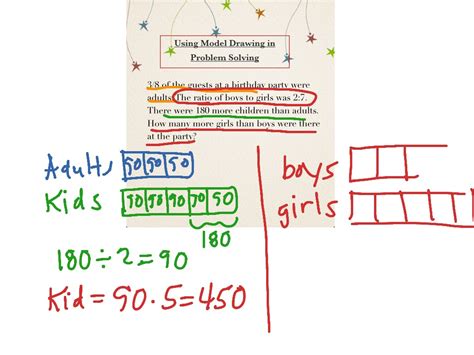 Using Model Drawing in
Problem Solving
3/8 of the guests at a birthday party were
adults. The ratio of boys to girls was 2:7.
There were 180 more children than adults.
How many more girls than boys were there
at the party?
Adults 90 90 90
Kids 90 90 90 90 90
180
180 ÷ 2 = 90
Kid = 90 · 5 = 450
boys
girls